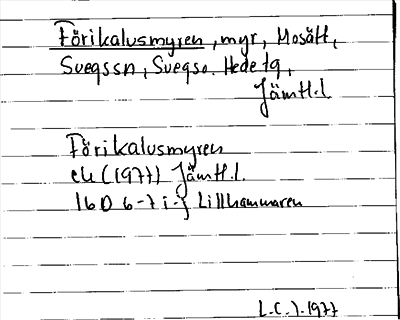 Förikalusmyren, myr, Mosätt,
Svegssn, Svegso. Hede tg,
Jämtl.l
Förikalusmyren
ek (1977) Jämtl.l.
16D 6-7 i-j Lillhammaren
L.C.J. 1977